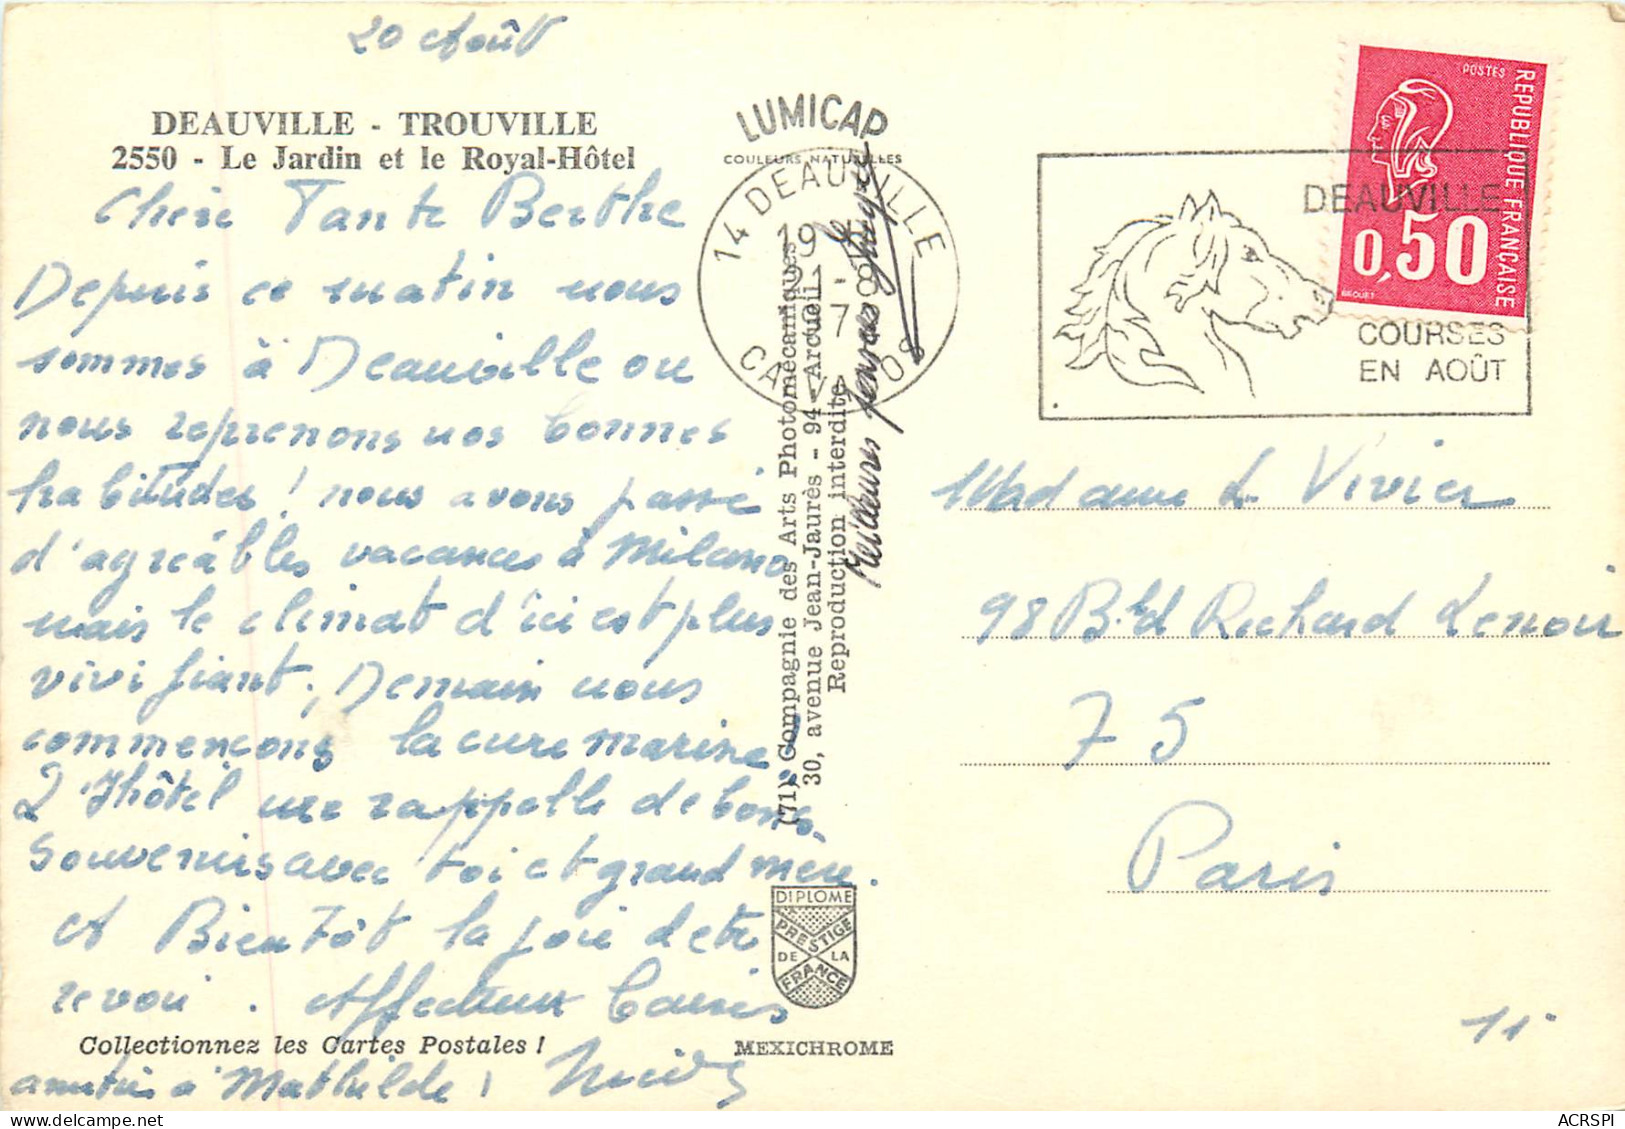 20 Août
DEAUVILLE - TROUVILLE
2550 - Le Jardin et le Royal-Hôtel
Chère Tante Berthe
Depuis ce matin nous
sommes à Deauville ou
nous reprenons nos bonnes
habitudes ! nous avons passé
d'agréables vacances à Milano
mais le climat d'ici est plus
vivifiant, Demain nous
commençons la cure marine !
L'hôtel me rappelle de bons
souvenirs avec toi et grand mère.
A Bientôt la joie de te
revoir. Affectueux baisers
Collectionnez les Cartes Postales !
amitiés à Mathilde !
LUMICAP
COULEURS NATURELLES
14 DEAUVILLE
19 H
21 - 8
7
CALVADOS
Meilleures pensées
(71) Compagnie des Arts Photomécaniques
30, avenue Jean-Jaurès - 94 - Arcueil
Reproduction interdite
DIPLOME
PRESTIGE
DE LA
FRANCE
MEXICHROME
POSTES
REPUBLIQUE FRANÇAISE
0,50
BEQUET
DEAUVILLE
COURSES
EN AOÛT
Madame L. Vivier
98 Bld Richard Lenoir
75
Paris
11
ACRSPI